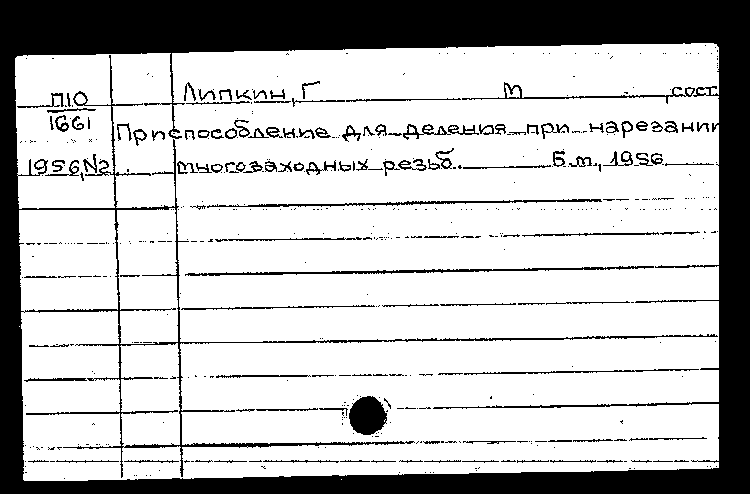 П10 Липкин, Г М , сост.
1661 Приспособление для деления при нарезании
1956,№2 многозаходных резьб. Б.м., 1956